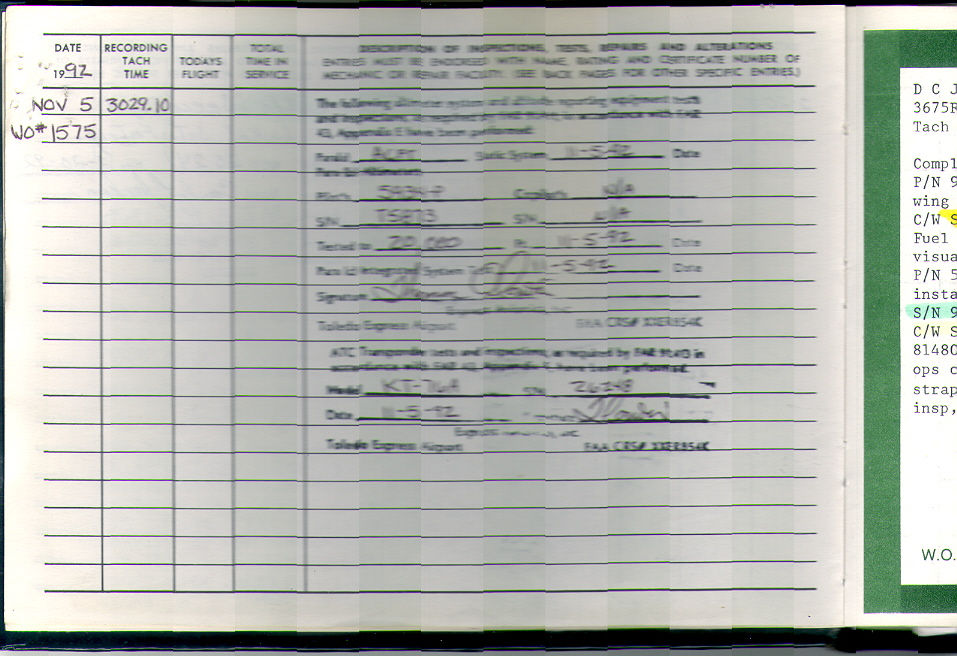 DATE
1992
RECORDING
TACH
TIME
TODAYS
FLIGHT
TOTAL
TIME IN
SERVICE
DESCRIPTION OF INSPECTIONS, TESTS, REPAIRS AND ALTERATIONS
ENTRIES MUST BE ENDORSED WITH NAME, RATING AND CERTIFICATE NUMBER OF
MECHANIC OR REPAIR FACILITY. (SEE BACK PAGES FOR OTHER SPECIFIC ENTRIES.)
NOV 5 3029.10
WO# 1575
The following altimeter system and altitude reporting equipment tests
and inspections, as required by FAR in accordance with FAR
43, Appendix E have been performed:
Static System 11-5-92 Date
Pilot's 5934-P Copilot's N/A
S/N S/N N/A
Tested to 20,000 11-5-92 Date
Integrated System 11-5-92 Date
Signature
Toledo Express Airport FAA CRS#
ATC Transponder tests and inspections, as required by FAR in
accordance with FAR 43, Appendix have been performed.
Model KT-76A S/N 26248
Date 11-5-92
Toledo Express Airport FAA CRS#
D C J
3675R
Tach
Compl
P/N 9
wing
C/W S
Fuel
visua
P/N 5
insta
S/N 9
C/W S
81480
ops c
strap
insp,
W.O.